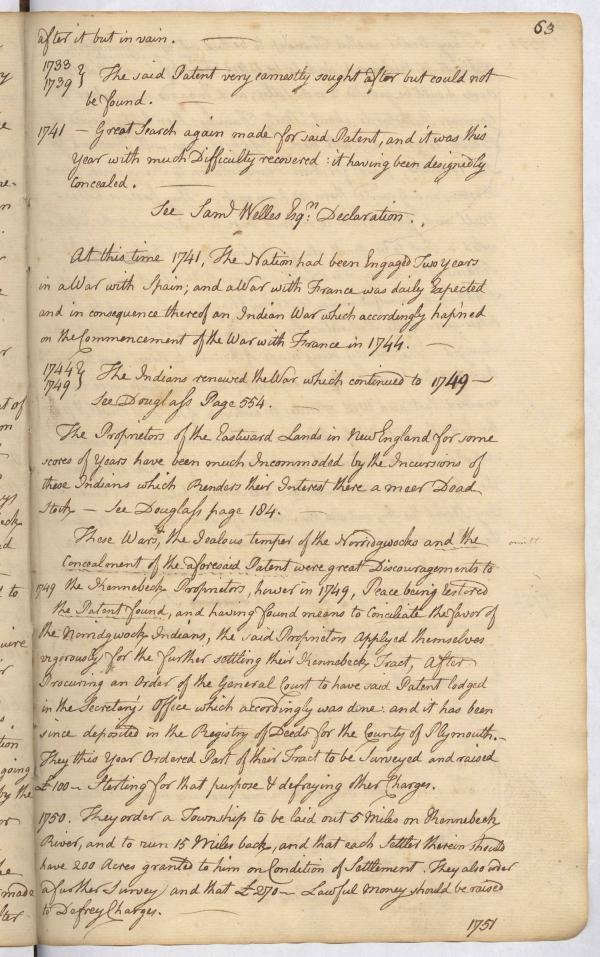 63
after it but in vain. —
1733 }
1739 } The said Patent very earnestly sought after but could not
be found. —
1741 — Great Search again made for said Patent, and it was this
Year with much Difficulty recovered: it having been designedly
Concealed. —
See Saml Welles Esqrs. Declaration.
At this time 1741, The Nation had been Engaged Two Years
in a War with Spain; and a War with France was daily Expected
and in consequence thereof an Indian War which accordingly hap'ned
on the Commencement of the War with France in 1744. —
1744 }
1749 } The Indians renewed the War which continued to 1749 —
See Douglass Page 554. —
The Proprietors of the Eastward Lands in New England for some
scores of Years have been much Incommoded by the Incursions of
these Indians which Renders their Interest there a meer Dead
Stock — See Douglass page 184. —
These Wars, the Jealous temper of the Norridgwocks and the
Concealment of the aforesaid Patent were great Discouragements to
1749 the Kennebeck Proprietors, however in 1749, Peace being restored
the Patent found, and having found means to Conciliate the favor of
the Norridgwock Indians, the said Proprietors Applyed themselves
vigorously for the further settling their Kennebeck Tract, After
Procuring an Order of the General Court to have said Patent lodged
in the Secretary's Office which accordingly was done: and it has been
since deposited in the Registry of Deeds for the County of Plymouth. —
They this Year Ordered Part of their Tract to be Surveyed and raised
£100 — Sterling for that purpose & defraying other Charges.
1750. They order a Township to be laid out 5 Miles on Kennebeck
River, and to run 15 Miles back, and that each Settler therein should
have 200 Acres granted to him on Condition of Settlement. They also order
a further Survey, and that £270 — Lawful Money should be raised
to Defrey Charges. —
1751